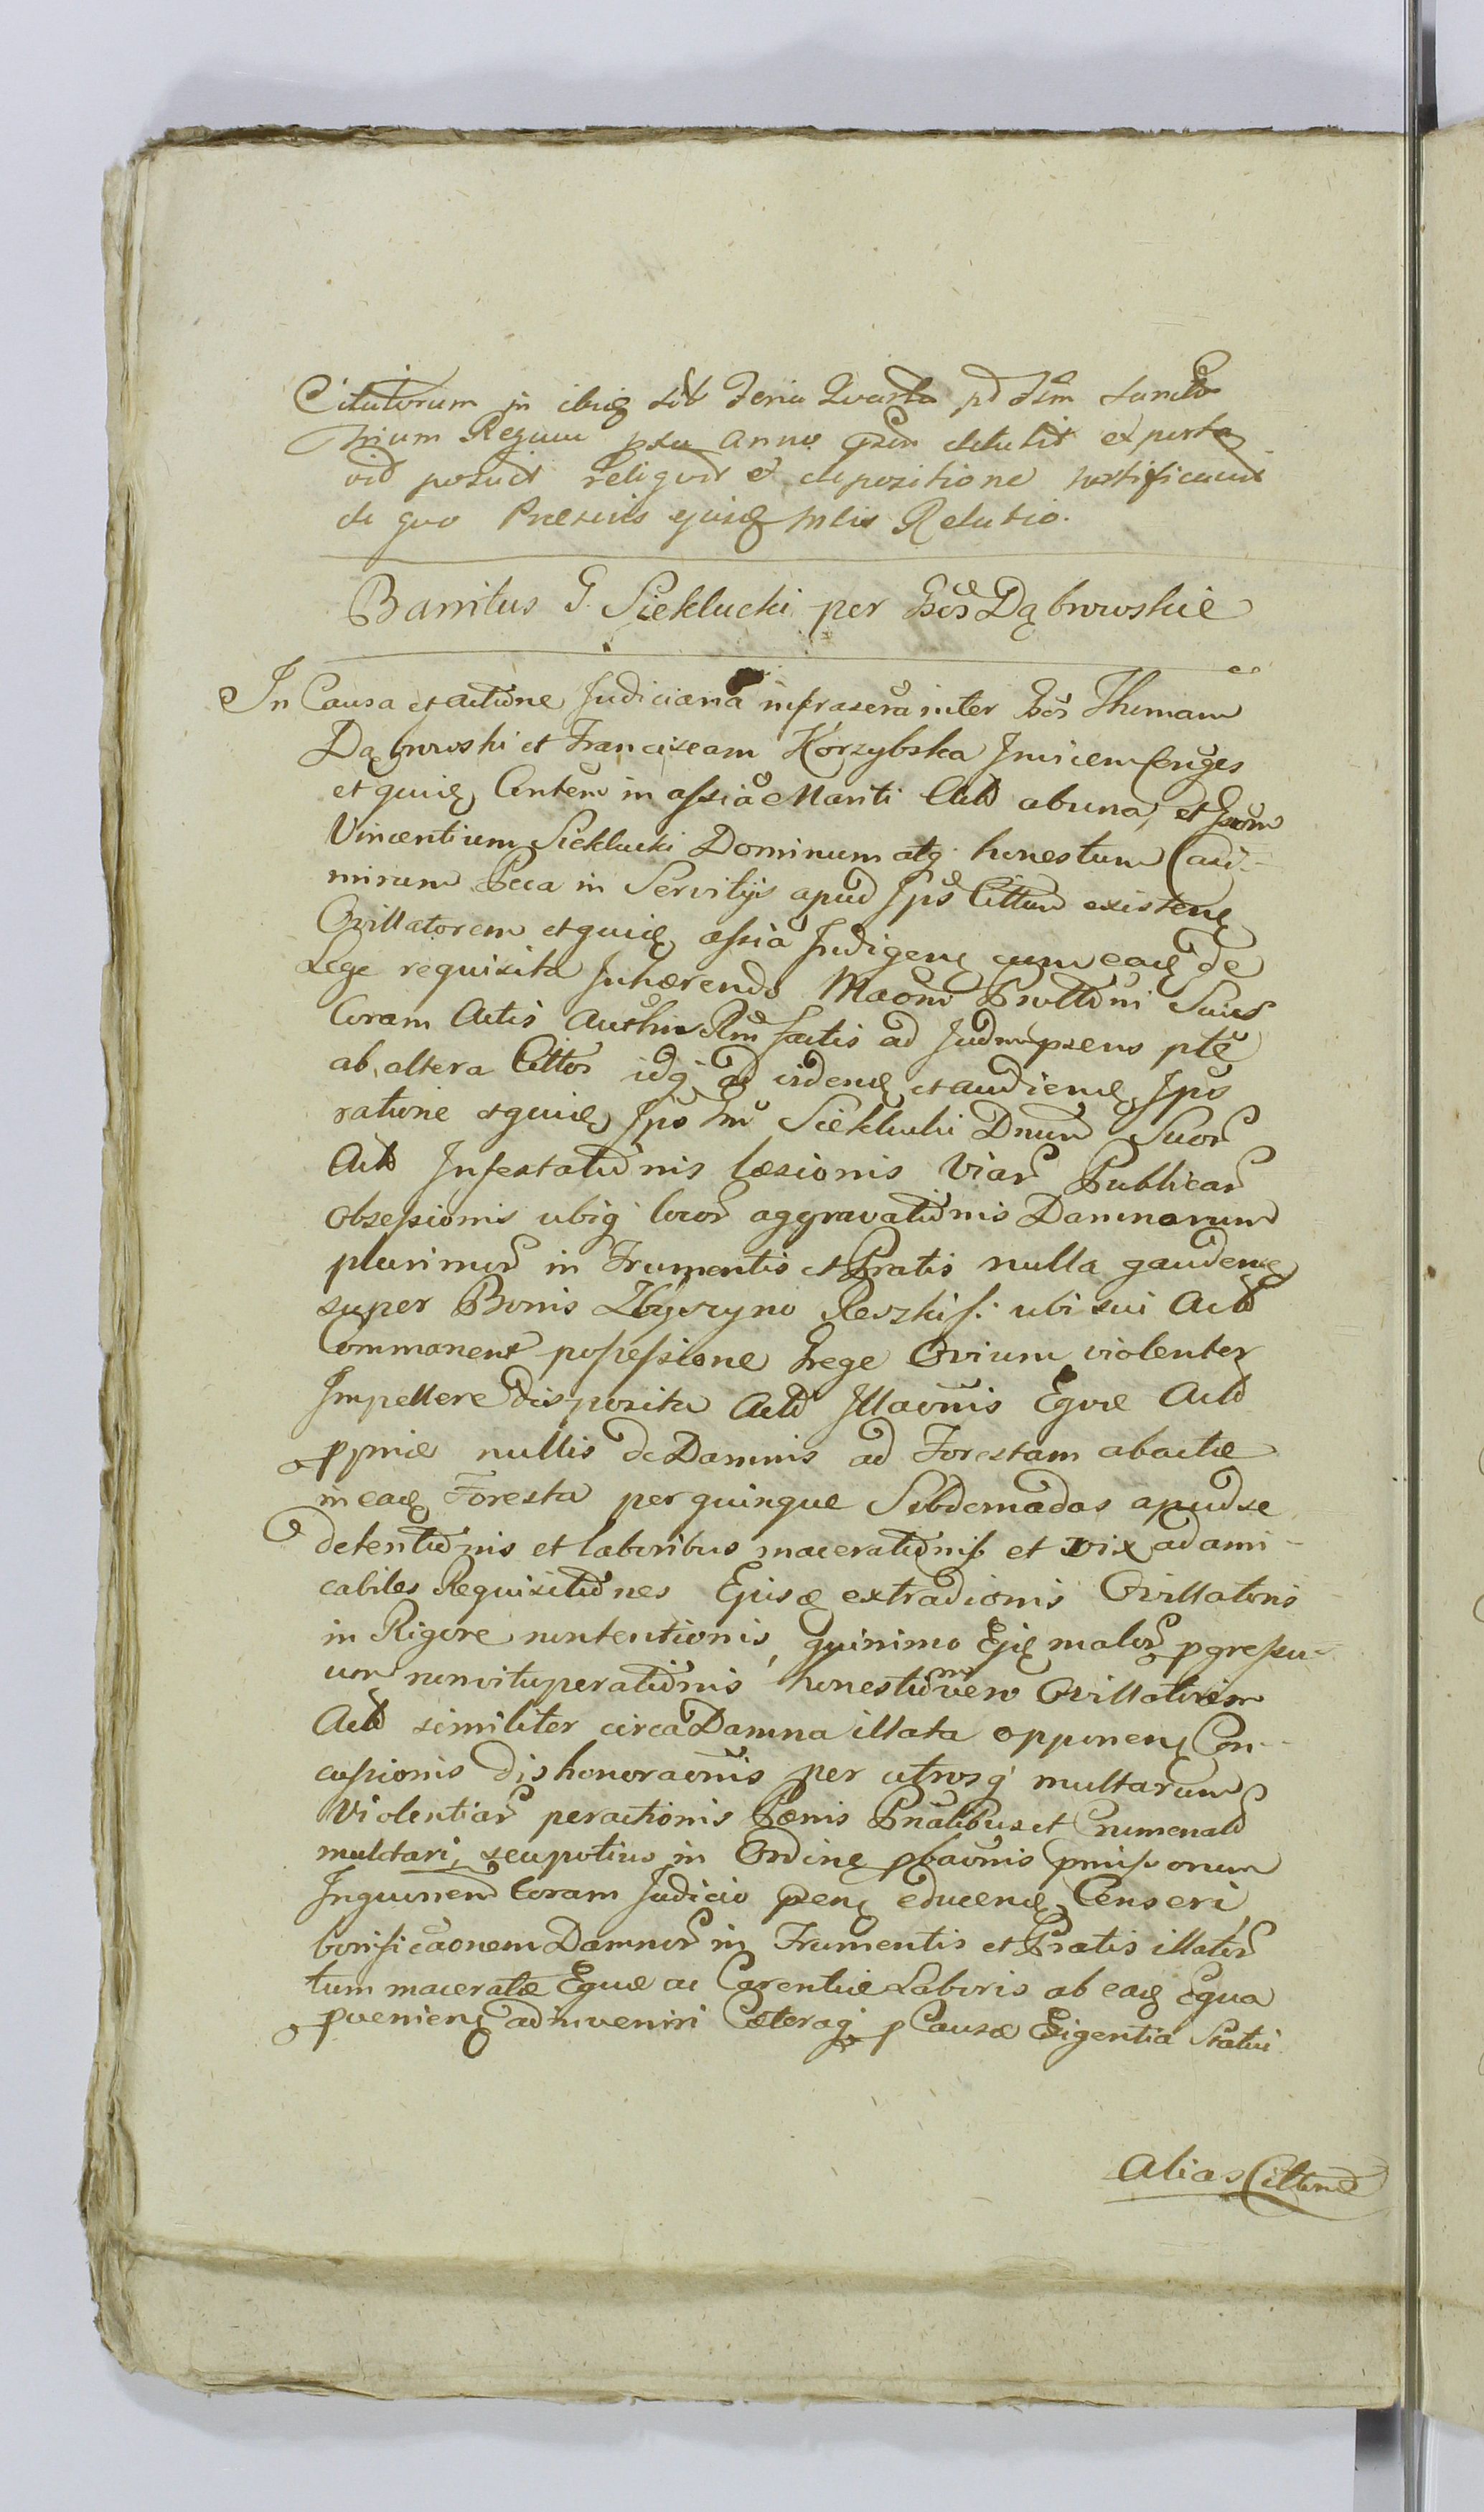 Citatorum in ibiq sit Feria Quarta pd Fsm Sanctor
trium Regum psu Anno psen detulit exporta
vid posuit reliquit et depositione notificavit
de quo Præsens ejusq Mlis Relatio.
Bannitus G. Siekluchi per Gsos Dąbrowskie
In Causa et actione Judiciaria infrascra inter Gsos Thomam
Dąbrowski et Franciscam Korzybska Invicem Conges
et quidę Contem in assia Mariti Actö ab una, et Gsom
Vincentium Sieklucki Dominum atq honestum Casi-
mirum Peca in Servitijs apud Ipsö Cittum existenę
Ovillatorem et quidę assia Indigenę cum eadę de
Lege requisita Inhærendo Maom Protlöni Suis
Coram Actis Authen Rm factis ad Judm psens pte
ab altera Cittos idq ad videndę et audiendę Ipso
ratione et quidę Ipso Gsi Sieklucki Dnum Suor
Actö Infestationis læsionis Viar Publicar
obsessionis ubiq locor aggravationis Damnorum
plurimor in Frumentis et Pratis nulla gaudenę
super Bonis Zbyszyno Reszkiss. ubi sui Actö
Commanent possessione Grege Ovium violenter
Impellere disposita Actö Illaönis Equæ Actö
ppriæ nullis de Damnis ad Forestam abactæ
in eadę Foresta per quinque Sebdomadas apud se
detentionis et laboribus macerationis et vix ad ami-
cabiles Requisitiones Ejusq extradionis Ovillatoris
in Rigore nontentionis, quinimo Ejusq malor pgressu-
um nonvituperationis honestum vero Ovillatorem
Actö similiter circa Damna illata opponenę Con-
cussionis dishonoraönis per utrosq multarum
Violentiar peractionis Pænis Pnalibus et Crumenalö
mulctari, seu potius in Ordinę pbaönis pmissorum
Inquonem Coram Judicio psenę educenę Censeri
bonificaonem Damnor in Frumentis et Pratis illator
tum maceratæ Equæ ac Carentiæ Laboris ab eadę Equa
pvenienę adinveniri Cæteraq p Causæ Exigentia Statui
Alias Cittand